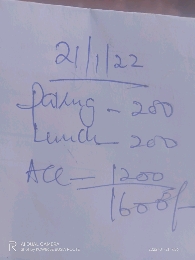 21/1/22
Parking - 200
Lunch - 200
Acc - 1200
1600/-
AI DUAL CAMERA